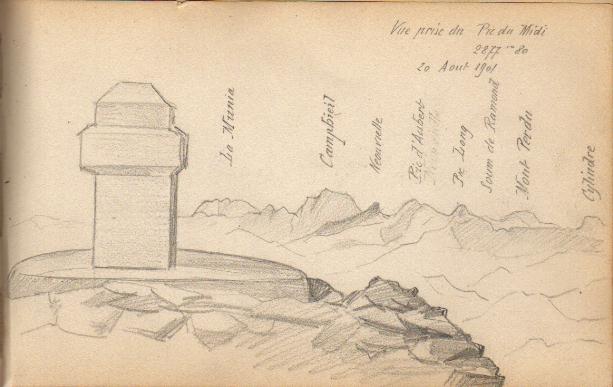 Vue prise du Pic du Midi
2877 m 80
20 Aout 1901
La Munia
Campbieil
Néouvielle
Pic d'Aubert
Pic Long
Soum de Ramond
Mont Perdu
Cylindre